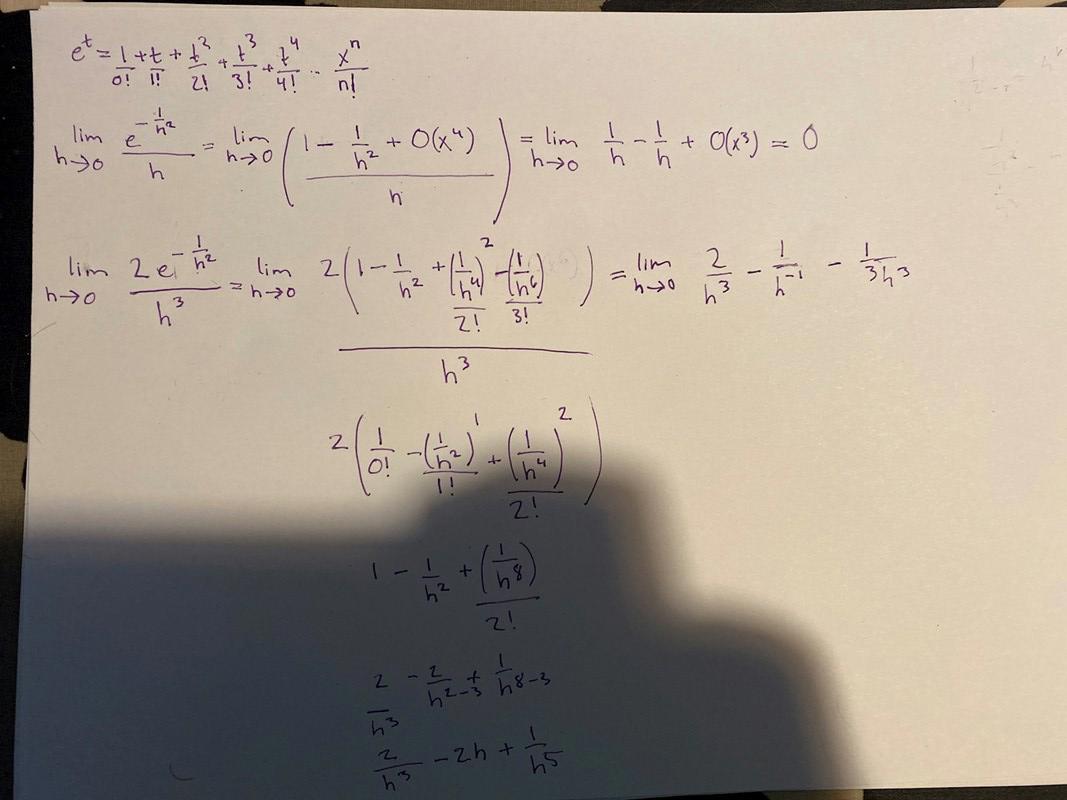 e^t = 1/0! + t/1! + t²/2! + t³/3! + t⁴/4! .. xⁿ/n!
lim h→0 e^(-1/h²)/h = lim h→0 ((1 - 1/h² + O(x⁴))/h) = lim h→0 1/h - 1/h + O(x³) = 0
lim h→0 2e^(-1/h²)/h³ = lim h→0 2(1 - 1/h² + (1/h⁴)²/2! - (1/h⁶)/3!)/h³ = lim h→0 2/h³ - 1/h⁻¹ - 1/3h³
2(1/0! - (1/h²)¹/1! + (1/h⁴)²/2!)
1 - 1/h² + (1/h⁸)/2!
2/h³ - 2/h²⁻³ + 1/h⁸⁻³
2/h³ - 2h + 1/h⁵